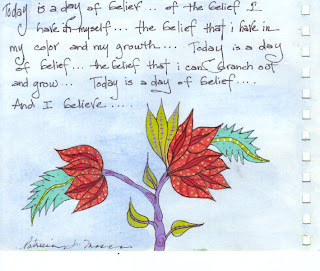 Today is a day of belief.. of the belief I
have in myself... the belief that i have in
my color and my growth.... Today is a day
of belief... the belief that i can branch out
and grow... Today is a day of belief....
And I believe.....
Patricia J.